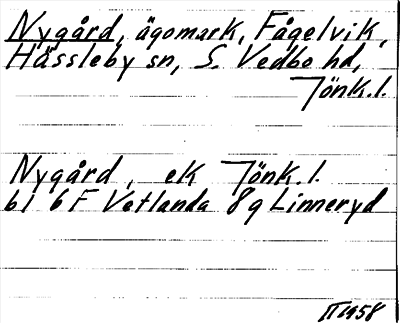 Nygård, ägomark, Fågelvik,
Hässleby sn, S. Vedbo hd,
Jönk.l.
Nygård, ek Jönk.l.
bl 6 F Vetlanda 8g Linneryd
1958